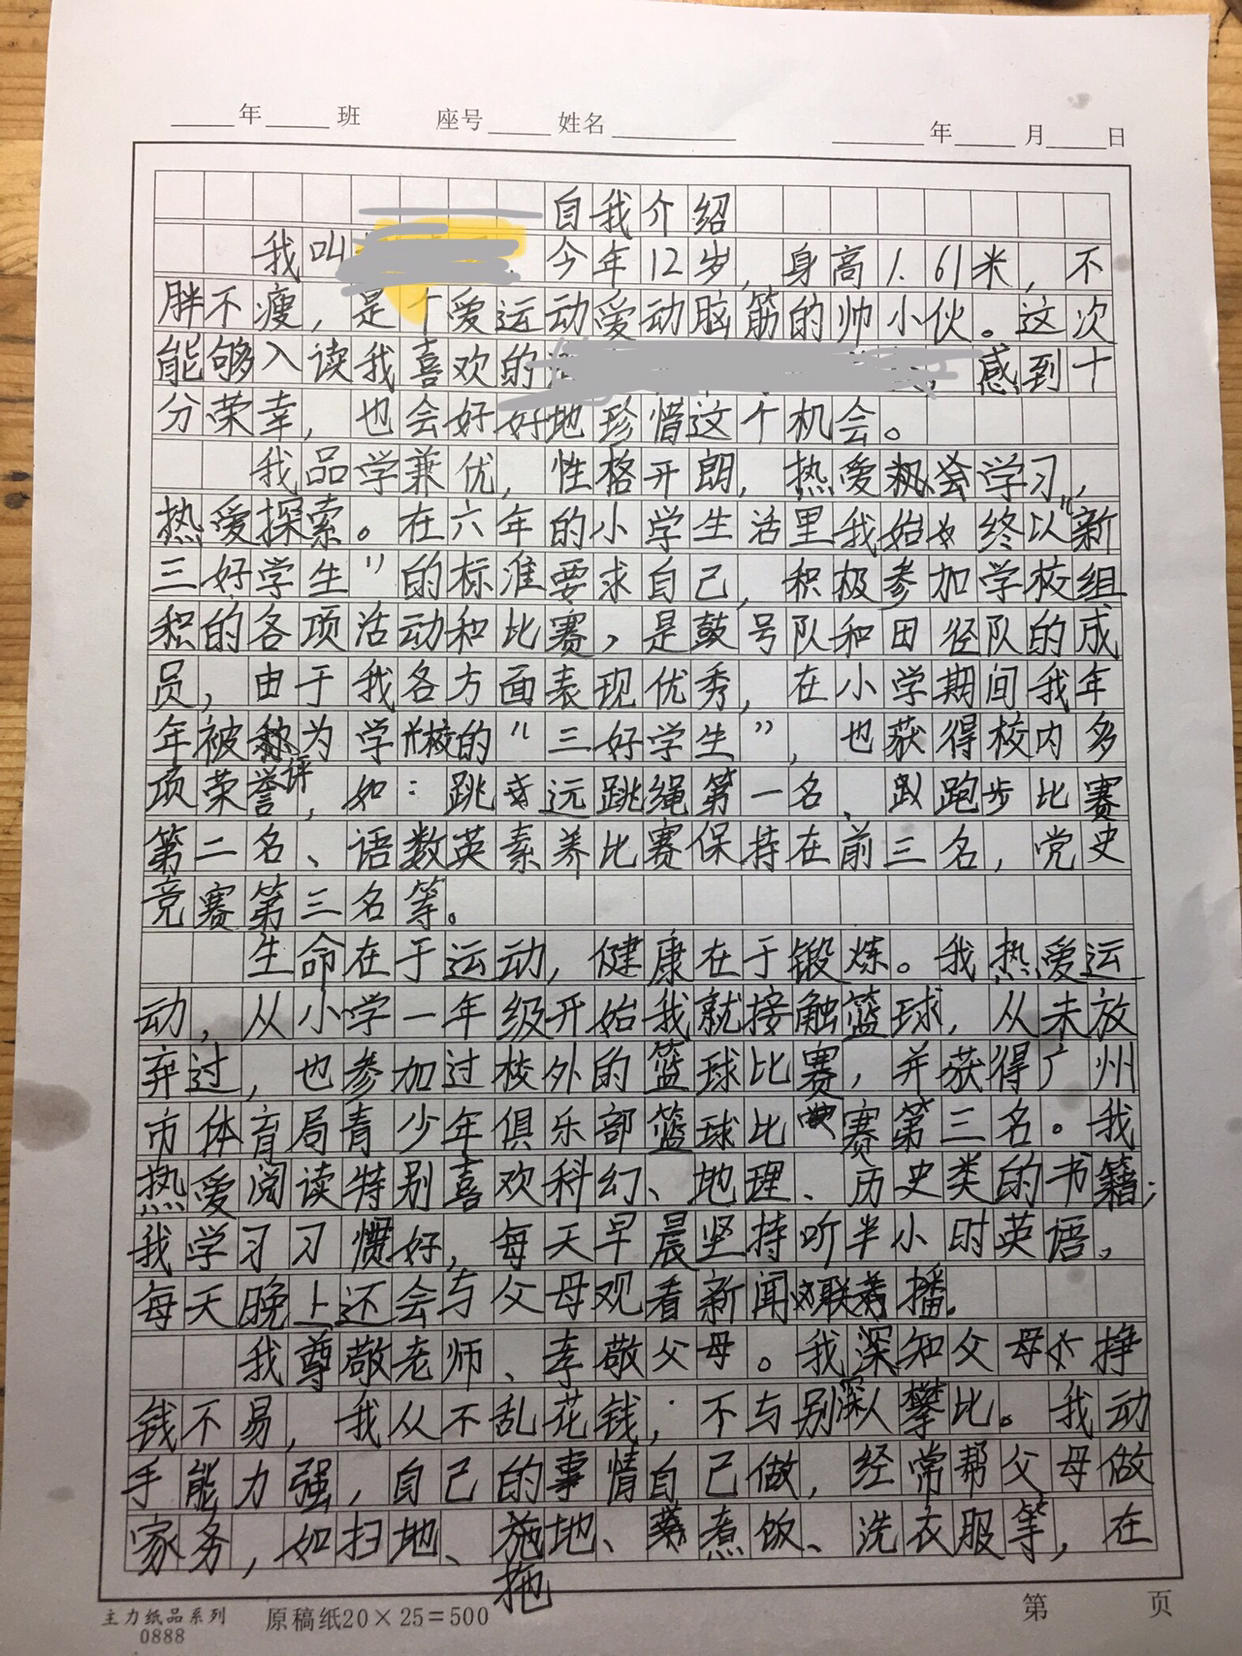 年 班 座号 姓名 年 月 日
自我介绍
我叫 今年12岁，身高1.61米，不
胖不瘦，是个爱运动爱动脑筋的帅小伙。这次
能够入读我喜欢的 感到十
分荣幸，也会好好地珍惜这个机会。
我品学兼优，性格开朗，热爱学习，
热爱探索。在六年的小学生活里我始终以“新
三好学生”的标准要求自己，积极参加学校组
积的各项活动和比赛，是鼓号队和田径队的成
员，由于我各方面表现优秀，在小学期间我年
年被评为学校的“三好学生”，也获得校内多
项荣誉，如：跳远跳绳第一名、跑步比赛
第二名、语数英素养比赛保持在前三名，党史
竞赛第三名等。
生命在于运动，健康在于锻炼。我热爱运
动，从小学一年级开始我就接触篮球，从未放
弃过，也参加过校外的篮球比赛，并获得广州
市体育局青少年俱乐部篮球比赛第三名。我
热爱阅读特别喜欢科幻、地理、历史类的书籍；
我学习习惯好，每天早晨坚持听半小时英语，
每天晚上还会与父母观看新闻联播。
我尊敬老师、孝敬父母。我深知父母挣
钱不易，我从不乱花钱，不与别人攀比。我动
手能力强，自己的事情自己做，经常帮父母做
家务，如扫地、拖地、煮饭、洗衣服等，在
主力纸品系列 0888 原稿纸20×25=500 第 页